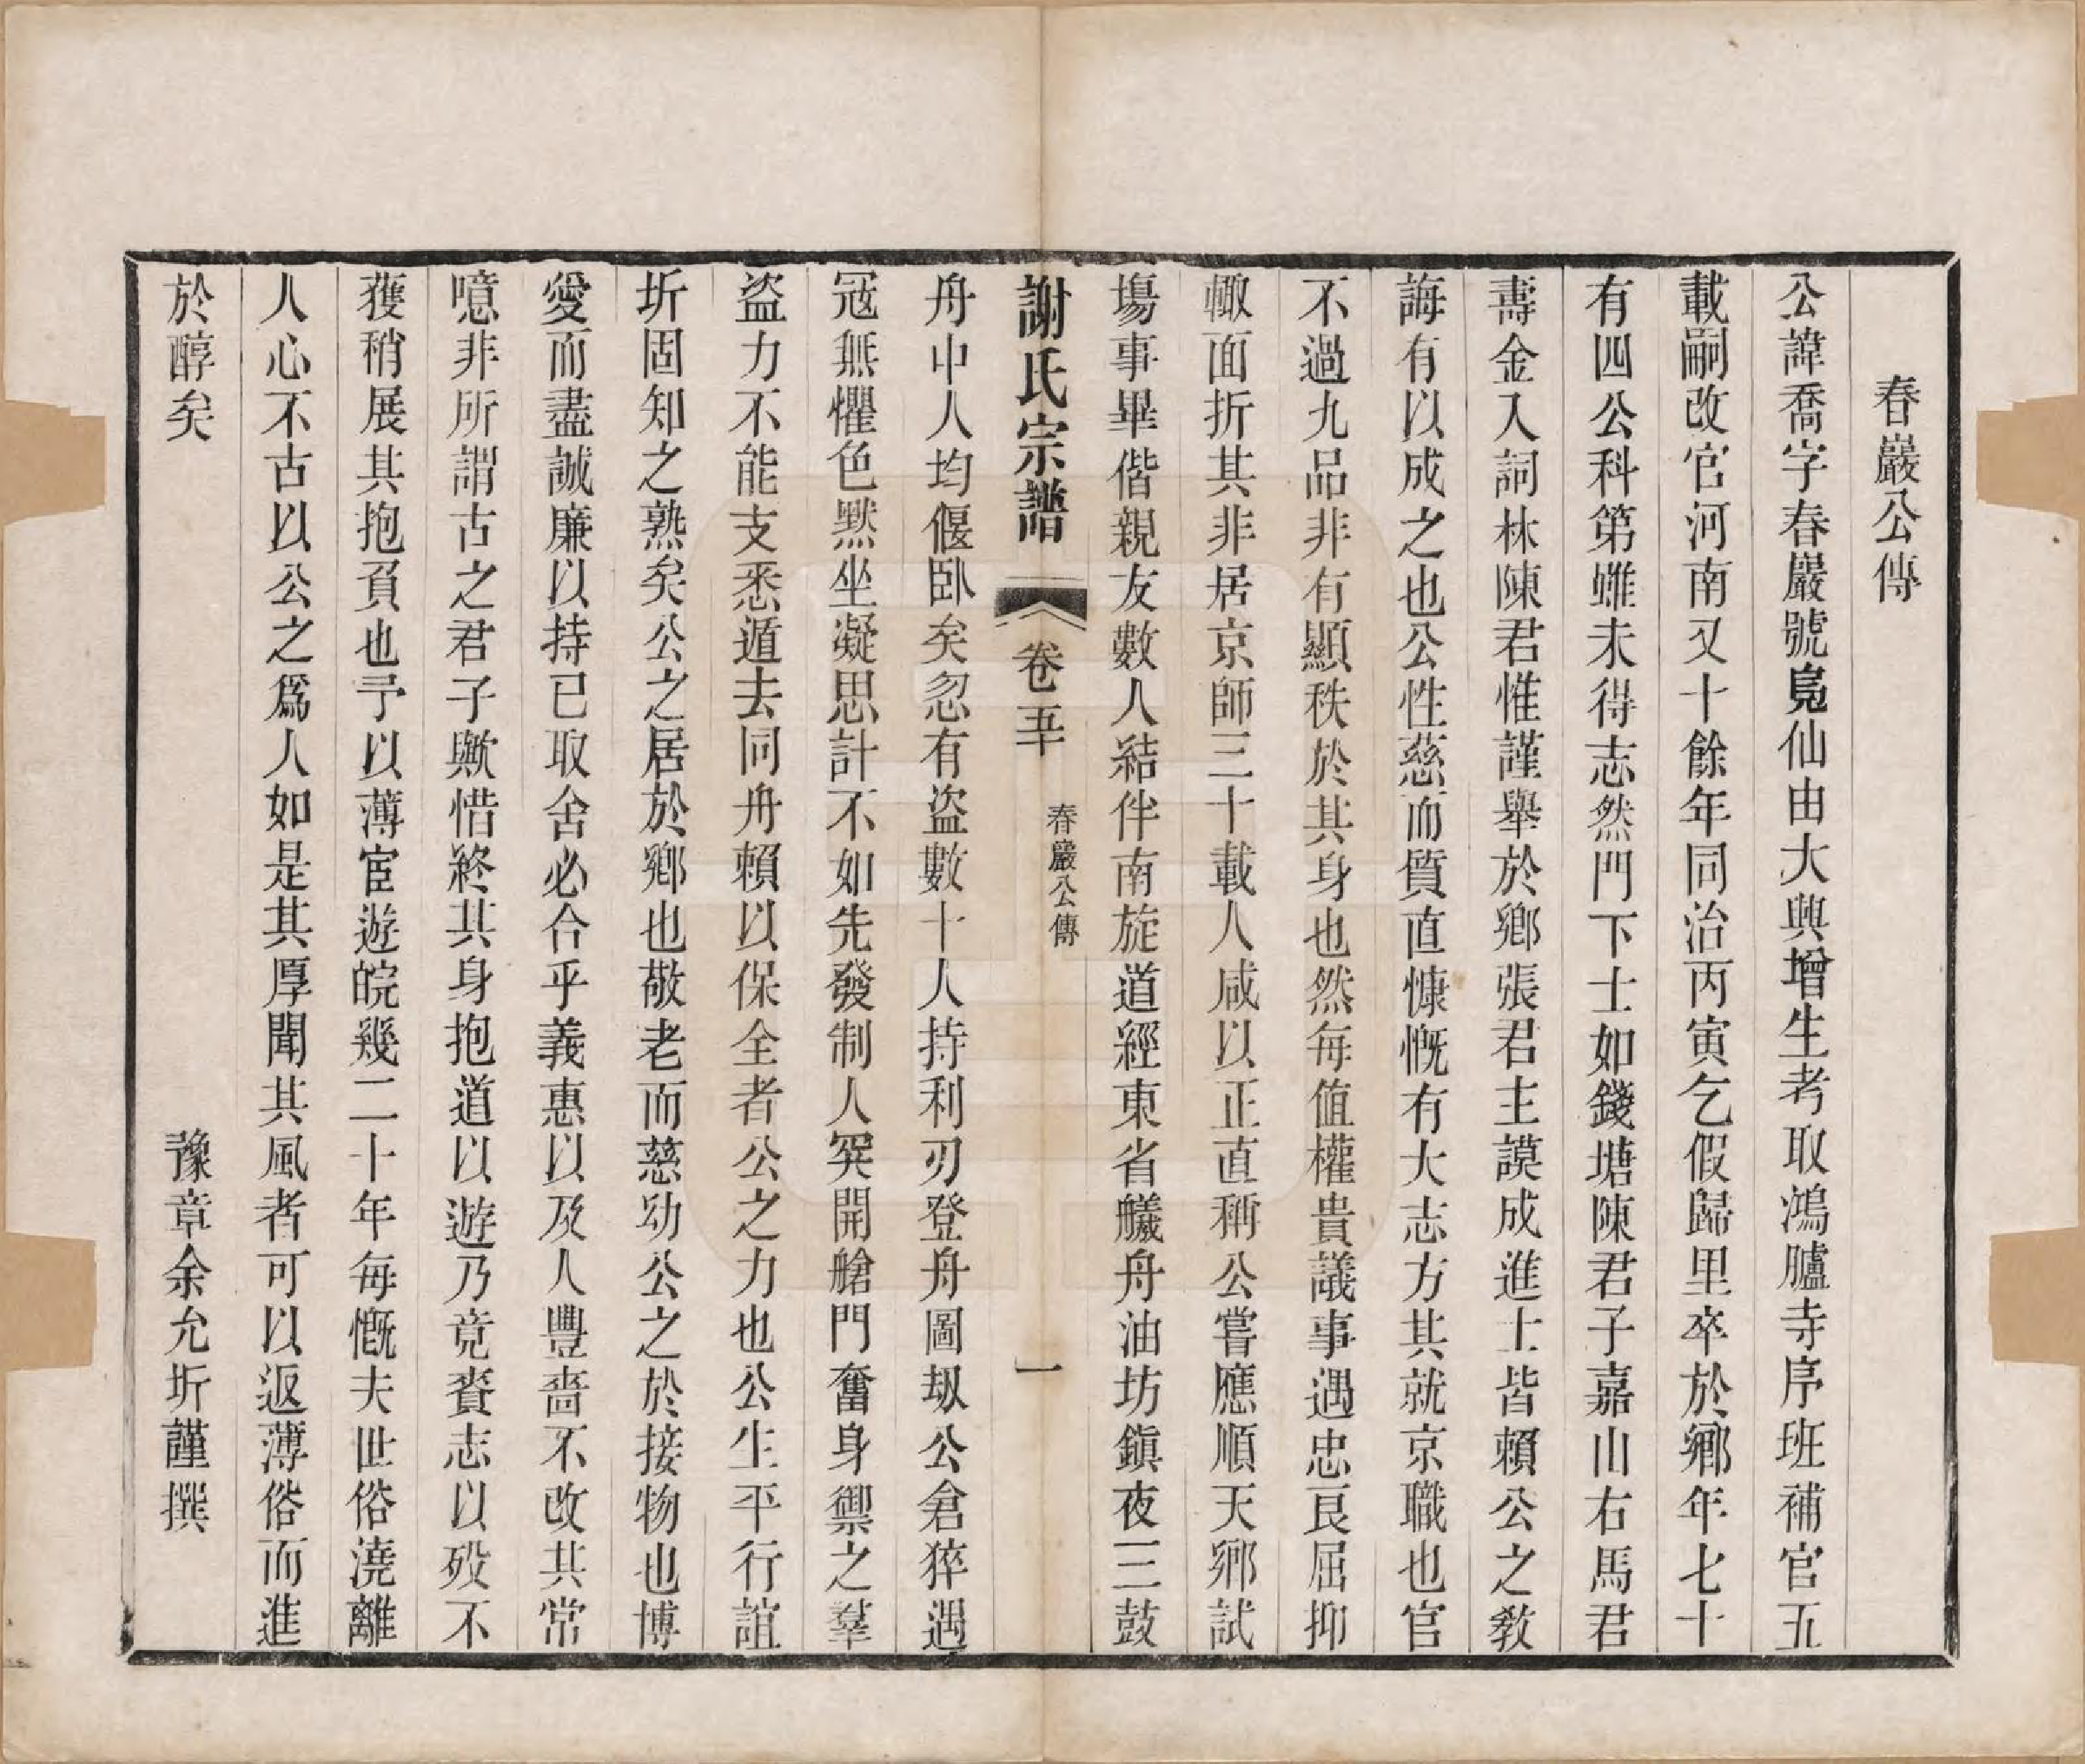 春巖公傳
公諱喬字春巖號鳧仙由大興增生考取鴻臚寺序班補官五
載嗣改官河南又十餘年同治丙寅乞假歸里卒於鄉年七十
有四公科第雖未得志然門下士如錢塘陳君子嘉山右馬君
壽金入詞林陳君惟謹舉於鄉張君主謨成進士皆賴公之敎
誨有以成之也公性慈而質直慷慨有大志方其就京職也官
不過九品非有顯秩於其身也然每值權貴議事遇忠良屈抑
輒面折其非居京師三十載人咸以正直稱公嘗應順天鄉試
塲事畢偕親友數人結伴南旋道經東省艤舟油坊鎭夜三鼓
謝氏宗譜
卷五十
春巖公傳
一
舟中人均偃臥矣忽有盜數十人持利刃登舟圖刼公倉猝遇
冦無懼色默坐凝思計不如先發制人突開艙門奮身禦之羣
盜力不能支悉遁去同舟賴以保全者公之力也公生平行誼
圻固知之熟矣公之居於鄕也敬老而慈幼公之於接物也博
愛而盡誠廉以持己取舍必合乎義惠以及人豐嗇不改其常
噫非所謂古之君子歟惜終其身抱道以遊乃竟賫志以歿不
獲稍展其抱負也予以薄宦遊皖幾二十年每慨夫世俗澆離
人心不古以公之爲人如是其厚聞其風者可以返薄俗而進
於醇矣
豫章余允圻謹撰